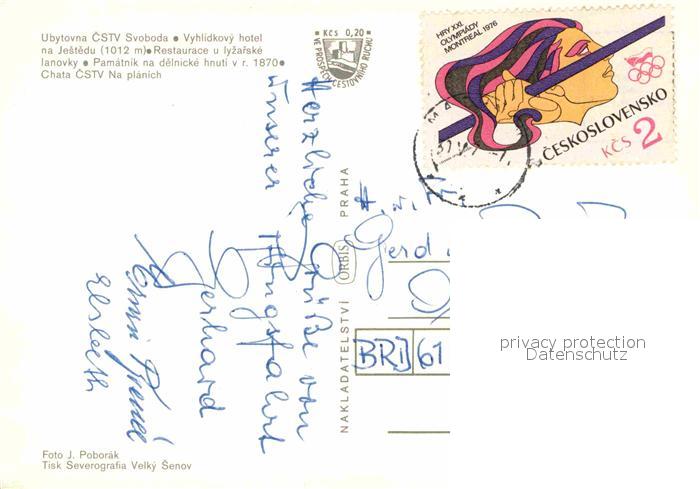 Ubytovna ČSTV Svoboda • Vyhlídkový hotel
na Ještědu (1012 m) • Restaurace u lyžařské
lanovky • Památník na dělnické hnutí v r. 1870 •
Chata ČSTV Na pláních
Kčs 0,20
VE PROSPĚCH CESTOVNÍHO RUCHU
HRY XXI.
OLYMPIÁDY
MONTREAL 1976
ČESKOSLOVENSKO
KČS 2
Herzliche Grüße von
unserer
Gerhard
Elsbeth
NAKLADATELSTVÍ ORBIS PRAHA
Gerd
BRD 61
privacy protection
Datenschutz
Foto J. Poborák
Tisk Severografia Velký Šenov